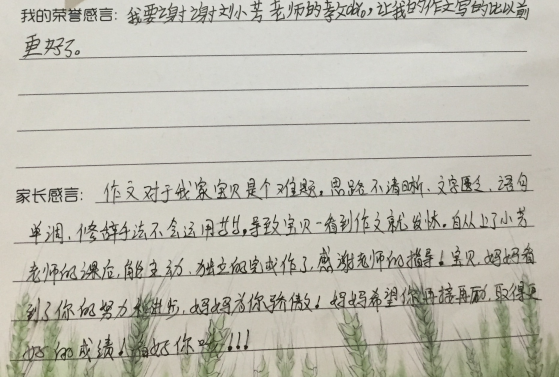 我的荣誉感言：我要谢谢刘小芳老师的教，让我的作文写的比以前
更好了。
家长感言：作文对于我家宝贝是个难题。思路不清晰、文字匮乏、语句
单调、修辞手法不会运用等，导致宝贝一看到作文就发怵。自从上了小芳
老师的课后，能主动、独立的完成作了，感谢老师的指导！宝贝，妈妈看
到了你的努力和进步，妈妈为你骄傲！妈妈希望你再接再励，取得更
好的成绩！看好你哟！！！